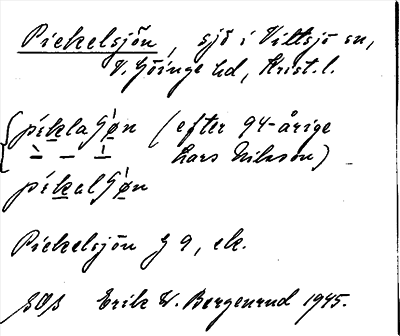 Pickelsjön, sjö i Vittsjö sn,
V. Göinge hd, Krist. l.
píklaʃǿn (efter 94-årige
Lars Nilsson)
píkalʃǿn
Pickelsjön G 9, ek.
Erik W. Bergenrud 1945.